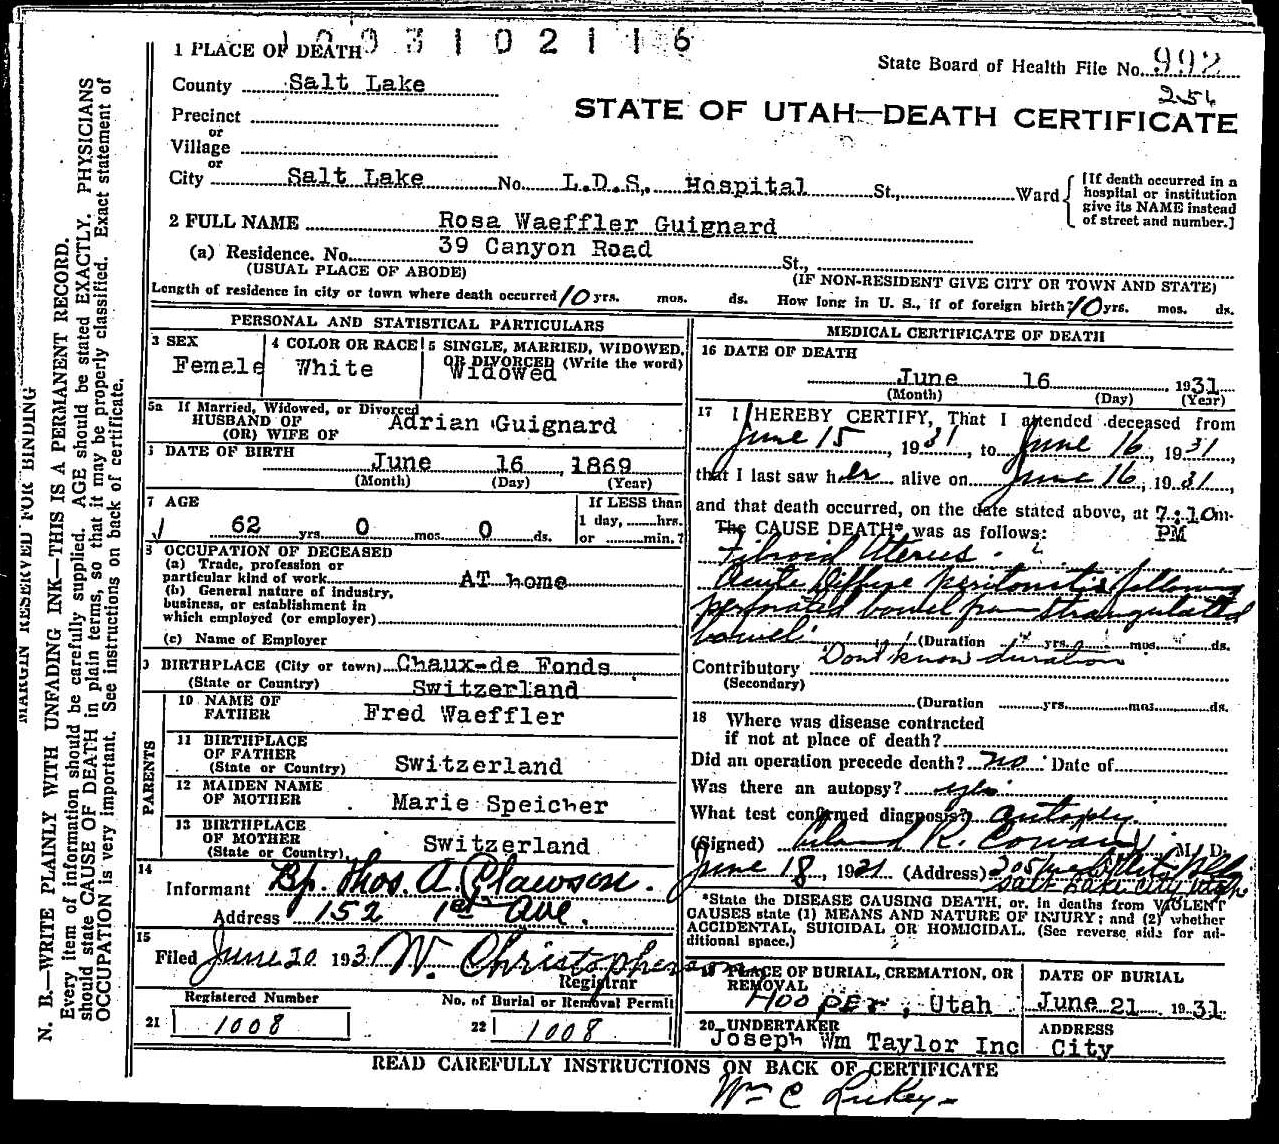 1 PLACE OF DEATH
State Board of Health File No. 992
County Salt Lake
256
STATE OF UTAH—DEATH CERTIFICATE
Precinct
or
Village
or
City Salt Lake No. L.D.S. Hospital St., Ward
[If death occurred in a hospital or institution give its NAME instead of street and number.]
2 FULL NAME Rosa Waeffler Guignard
(a) Residence. No. 39 Canyon Road St.,
(USUAL PLACE OF ABODE) (IF NON-RESIDENT GIVE CITY OR TOWN AND STATE)
Length of residence in city or town where death occurred 10 yrs. mos. ds. How long in U. S., if of foreign birth? 10 yrs. mos. ds.
PERSONAL AND STATISTICAL PARTICULARS
3 SEX Female
4 COLOR OR RACE White
5 SINGLE, MARRIED, WIDOWED,
OR DIVORCED (Write the word)
Widowed
5a If Married, Widowed, or Divorced
HUSBAND OF
(OR) WIFE OF Adrian Guignard
DATE OF BIRTH June 16, 1869
(Month) (Day) (Year)
7 AGE
62 yrs. 0 mos. 0 ds.
If LESS than
1 day, hrs.
or min.?
OCCUPATION OF DECEASED
(a) Trade, profession or
particular kind of work AT home
(b) General nature of industry,
business, or establishment in
which employed (or employer)
(c) Name of Employer
BIRTHPLACE (City or town) Chaux-de Fonds
(State or Country) Switzerland
PARENTS
10 NAME OF
FATHER Fred Waeffler
11 BIRTHPLACE
OF FATHER
(State or Country) Switzerland
12 MAIDEN NAME
OF MOTHER Marie Speicher
13 BIRTHPLACE
OF MOTHER
(State or Country) Switzerland
14
Informant Bp. Thos. A. Clawson.
Address 152 1st Ave.
15
Filed June 20 193 W. Christopherson
Registrar
Registered Number
21 1008
No. of Burial or Removal Permit
22 1008
MEDICAL CERTIFICATE OF DEATH
16 DATE OF DEATH
June 16, 1931
(Month) (Day) (Year)
17 I HEREBY CERTIFY, That I attended deceased from
June 15, 1931, to June 16, 1931
that I last saw her alive on June 16, 1931,
and that death occurred, on the date stated above, at 7:10m.
PM
The CAUSE DEATH* was as follows:
Fibroid Uterus.
Acute Diffuse peritonitis following
perforated bowel from strangulated
bowel (Duration yrs. mos. ds.
Contributory Dont know duration
(Secondary)
(Duration yrs. mos. ds.
18 Where was disease contracted
if not at place of death?
Did an operation precede death? no Date of
Was there an autopsy? yes
What test confirmed diagnosis? autopsy
(Signed) Leland R. Cowan, M. D.
June 18, 1931 (Address)
Salt Lake City Utah
*State the DISEASE CAUSING DEATH, or, in deaths from VIOLENT
CAUSES state (1) MEANS AND NATURE OF INJURY; and (2) whether
ACCIDENTAL, SUICIDAL OR HOMICIDAL. (See reverse side for ad-
ditional space.)
19 PLACE OF BURIAL, CREMATION, OR
REMOVAL
Hooper, Utah
DATE OF BURIAL
June 21 1931
20 UNDERTAKER
Joseph Wm Taylor Inc
ADDRESS
City
READ CAREFULLY INSTRUCTIONS ON BACK OF CERTIFICATE
Wm C
MARGIN RESERVED FOR BINDING
N. B.—WRITE PLAINLY WITH UNFADING INK—THIS IS A PERMANENT RECORD.
Every item of information should be carefully supplied. AGE should be stated EXACTLY. PHYSICIANS
should state CAUSE OF DEATH in plain terms, so that it may be properly classified. Exact statement of
OCCUPATION is very important. See instructions on back of certificate.